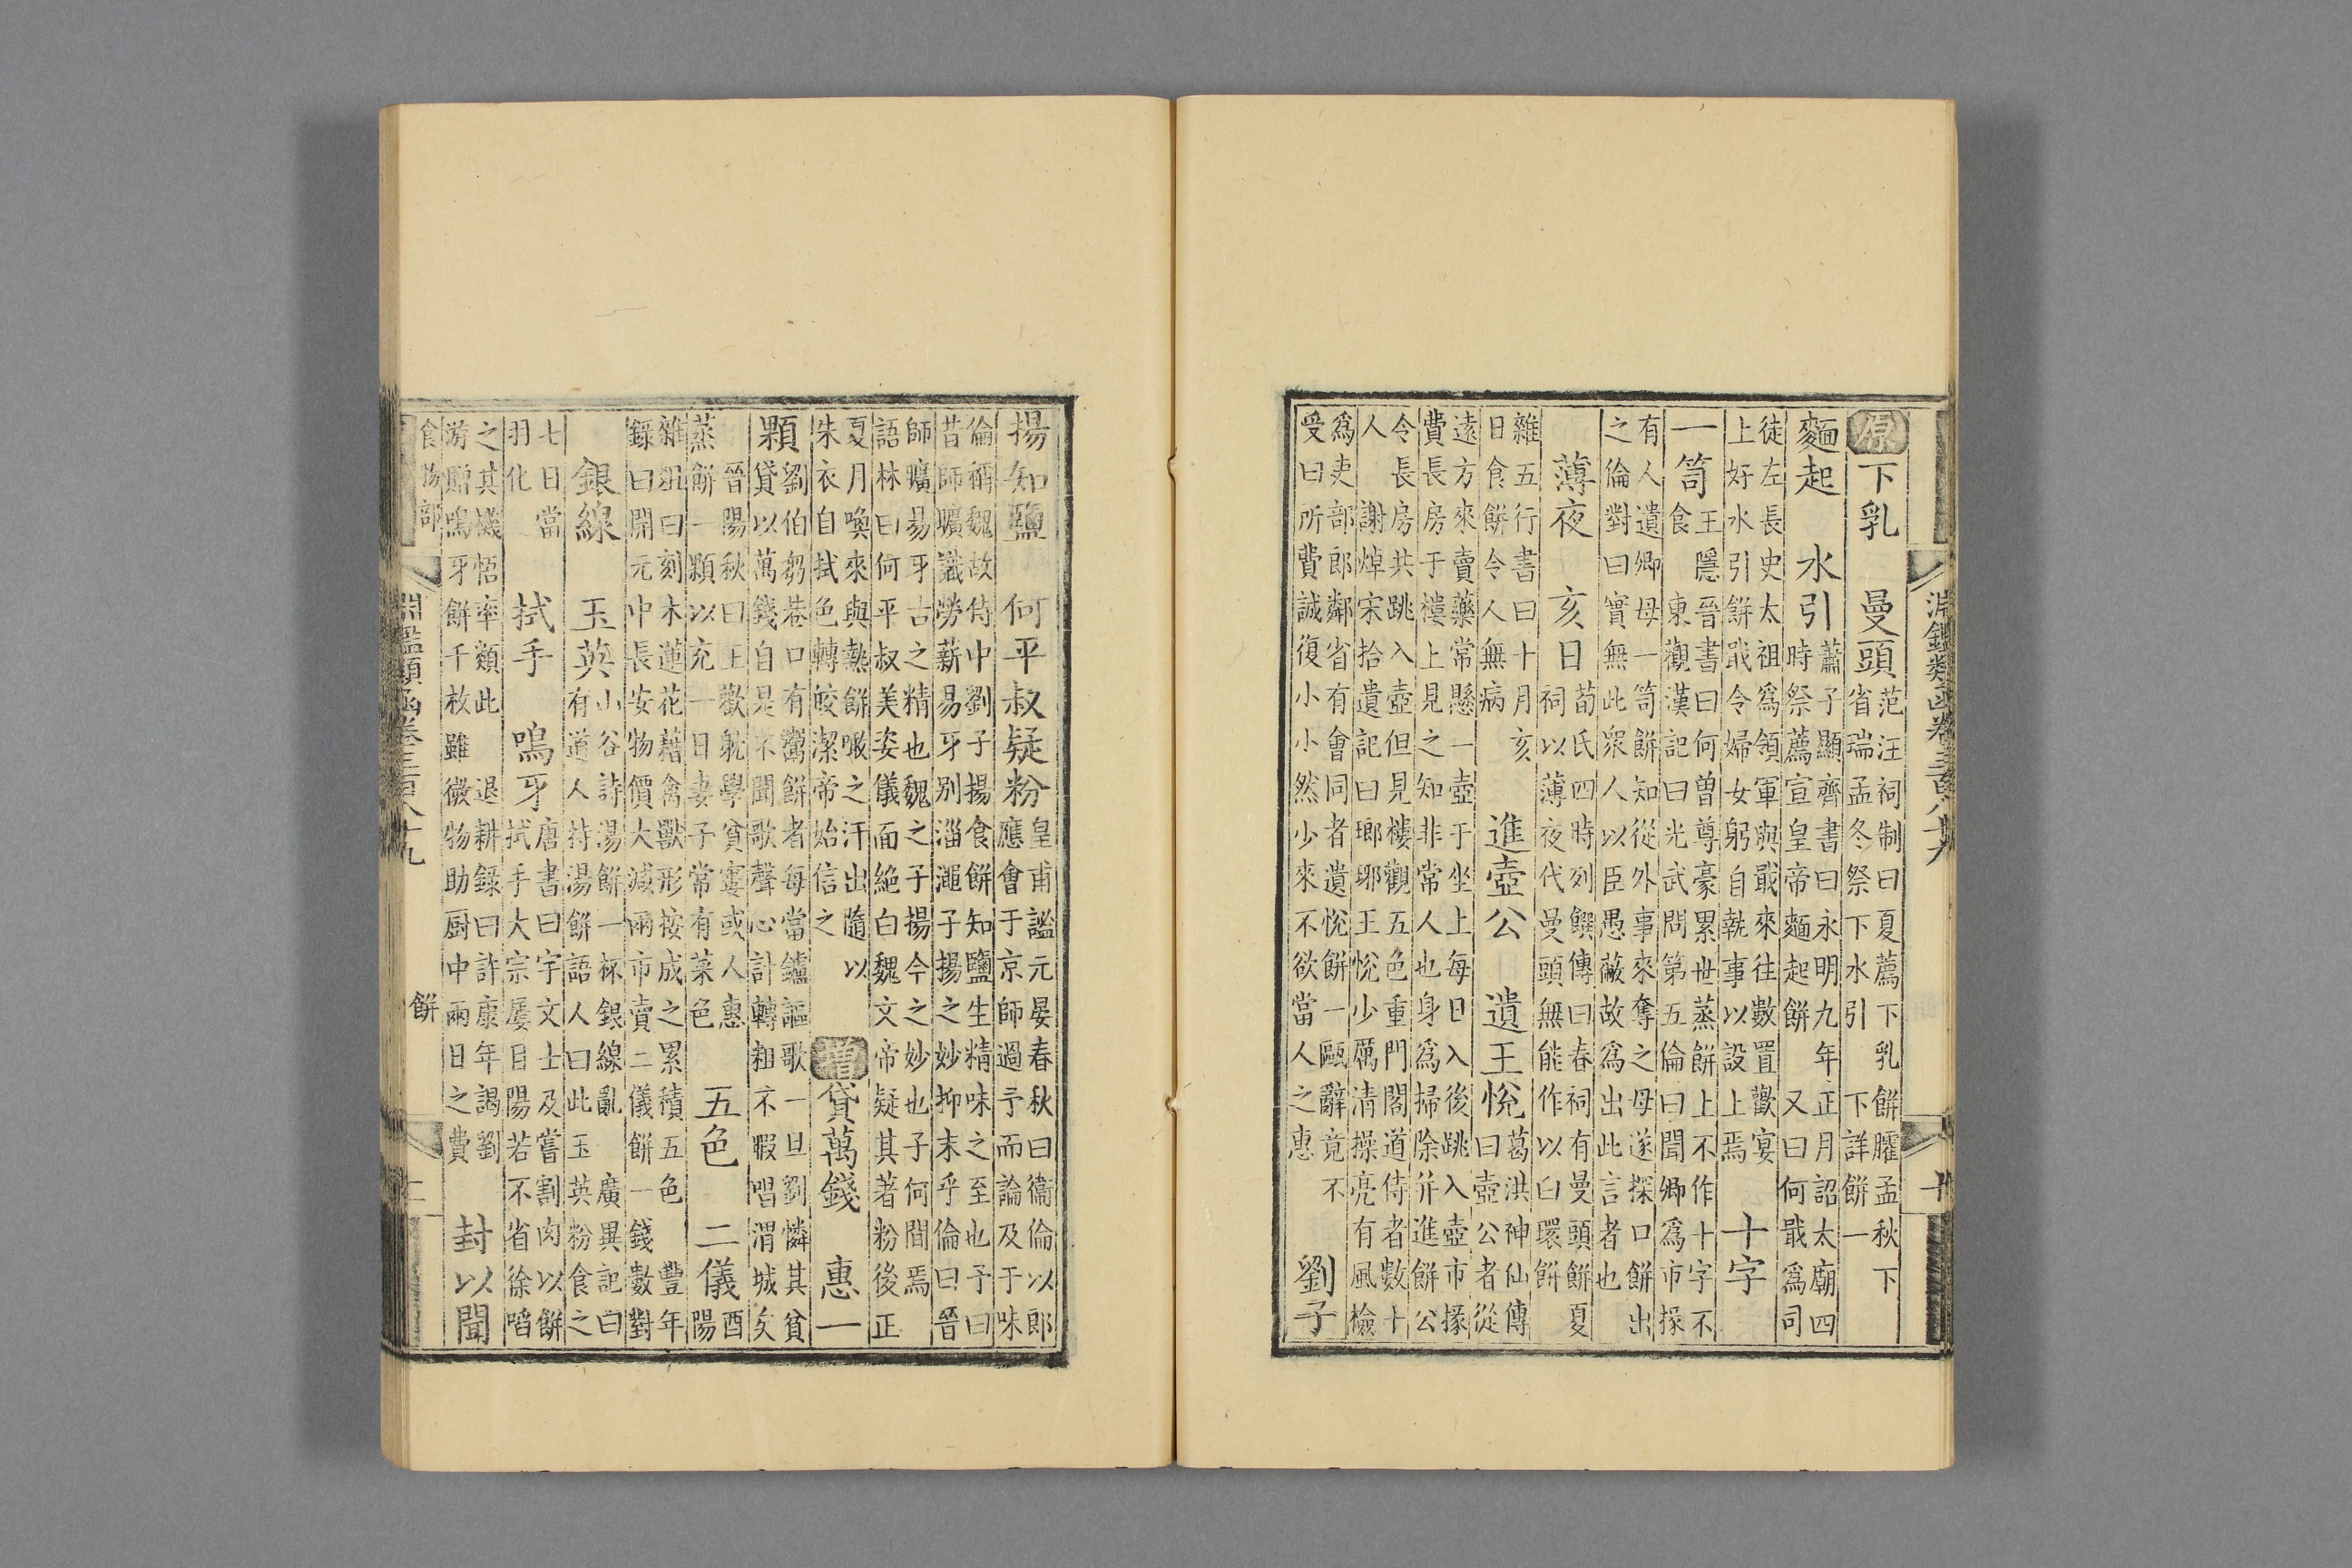 淵鑑類函卷三百八十九 十
原 下乳 曼頭
范汪祠制曰夏薦下乳餅臛孟秋下
省瑞孟冬祭下水引 下詳餅一
麵起 水引
蕭子顯齊書曰永明九年正月詔太廟四
時祭薦宣皇帝麵起餅 又曰何戢爲司
徒左長史太祖爲領軍與戢來往數置歡宴
上好水引餅戢令婦女躬自執事以設上焉
十字
一笥
王隱晉書曰何曾尊豪累世蒸餅上不作十字不
食 東觀漢記曰光武問第五倫曰聞卿爲市掾
有人遺卿母一笥餅知從外事來奪之母遂探口餅出
之倫對曰實無此眾人以臣愚蔽故爲出此言者也
薄夜 亥日
荀氏四時列饌傳曰春祠有曼頭餅夏
祠以薄夜代曼頭無能作以白環餅
雜五行書曰十月亥
日食餅令人無病
進壺公 遺王悅
葛洪神仙傳
曰壺公者從
遠方來賣藥常懸一壺于坐上每日入後跳入壺市掾
費長房于樓上見之知非常人也身爲掃除并進餅公
令長房共跳入壺但見樓觀五色重門閣道侍者數十
人 謝焯宋拾遺記曰瑯琊王悅少厲清操亮有風檢
爲吏部郎鄰省有會同者遺悅餅一甌辭竟不
受曰所費誠復小小然少來不欲當人之惠
劉子
揚知鹽 何平叔疑粉
皇甫謐元晏春秋曰衞倫以郎
應會于京師過予而論及于味
倫稱魏故侍中劉子揚食餅知鹽生精味之至也予曰
昔師曠識勞薪易牙別淄澠子揚之妙抑末乎倫曰晉
師曠易牙古之精也魏之子揚今之妙也子何間焉
語林曰何平叔美姿儀面絕白魏文帝疑其著粉後正
夏月喚來與熱餅噉之汗出隨以
朱衣自拭色轉皎潔帝始信之
增 貸萬錢 惠一
顆
劉伯芻巷口有鬻餅者每當鑪謳歌一旦劉憐其貧
貸以萬錢自是不聞歌聲心計轉粗不暇唱渭城矣
晉陽秋曰王歡躭學貧窶或人惠
蒸餅一顆以充一日妻子常有菜色
五色 二儀
酉
陽
雜俎曰刻木蓮花藉禽獸形按成之累積五色 豐年
錄曰開元中長安物價大減兩市賣二儀餅一錢數對
銀線 玉英
山谷詩湯餅一杯銀線亂 廣異記曰
有道人持湯餅語人曰此玉英粉食之
七日當
羽化
拭手 嗚牙
唐書曰宇文士及嘗割肉以餅
拭手大宗屢目陽若不省徐啗
之其機悟率類此 退耕錄曰許康年謁劉
游贈嗚牙餅千枚雖微物助厨中兩日之費
封以聞
食物部 餅
淵鑑類函卷三百八十九